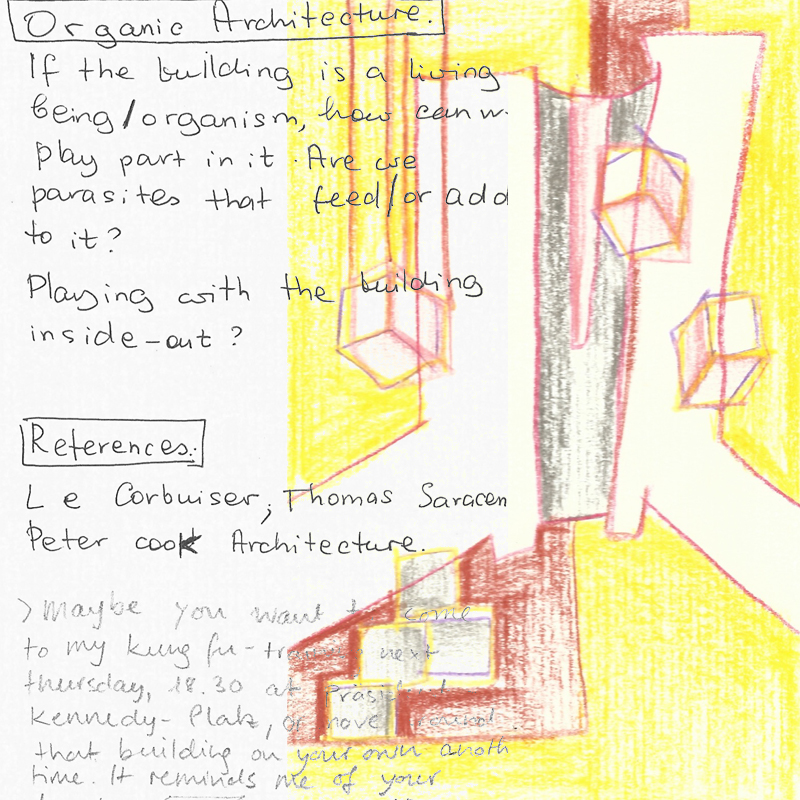 Organic Architecture.
If the building is a living
being/organism, how can w
play part in it. Are we
parasites that feed/or add
to it?
Playing with the building
inside-out?
References:
Le Corbuiser, Thomas Saracen
Peter cook Architecture.
> Maybe you want to come
to my kung fu-training next
thursday, 18.30 at präsident
Kennedy-Platz, or move around
that building on your own anoth
time. It reminds me of your